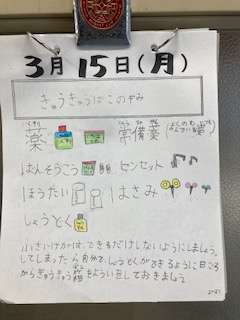 3月15日(月)
きゅうきゅうばこの中み
薬 常備薬
ばんそうこう ピンセット
ほうたい はさみ
しょうどく
小さいけがは、できるだけしないようにしましょう。
してしまったら自分で、しょうどくができるように日ごろ
からきゅうきゅう箱をようい意しておきましょう